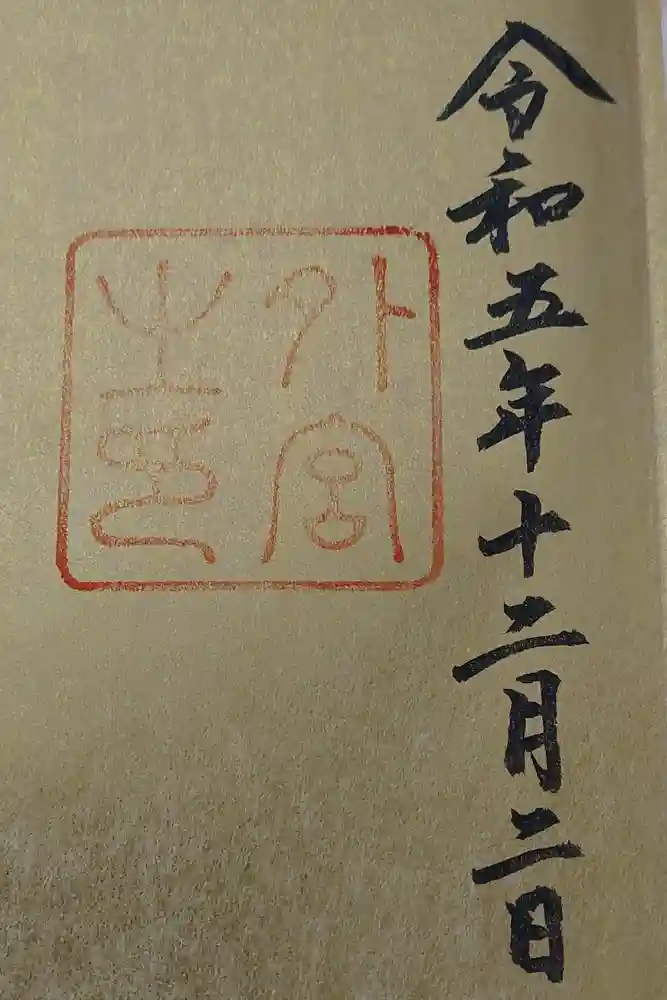 令和五年十二月二日
外宮
之璽